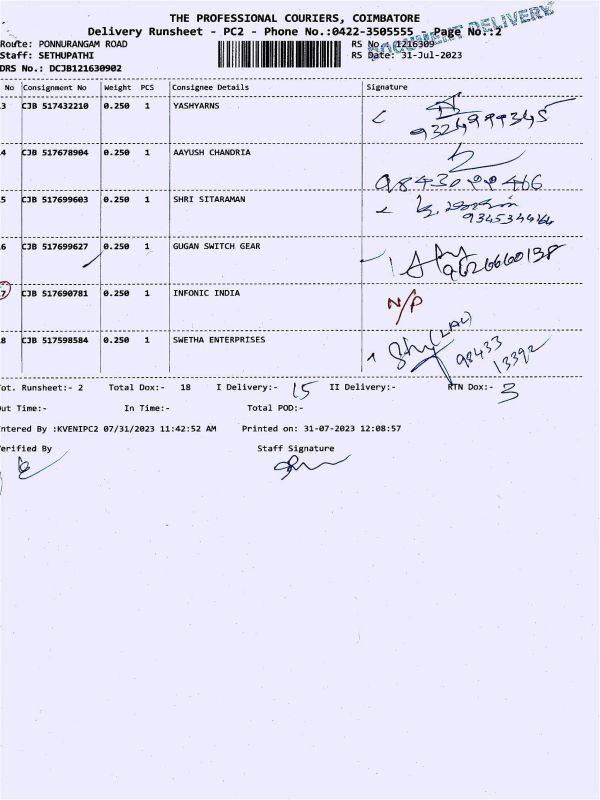 THE PROFESSIONAL COURIERS, COIMBATORE
DOCUMENT DELIVERY
Delivery Runsheet - PC2 - Phone No.:0422-3505555 - Page No.:2
Route: PONNURANGAM ROAD RS No. 1216309
Staff: SETHUPATHI RS Date: 31-Jul-2023
DRS No.: DCJB121630902
No Consignment No Weight PCS Consignee Details Signature
3 CJB 517432210 0.250 1 YASHYARNS 9324999345
4 CJB 517678904 0.250 1 AAYUSH CHANDRIA
5 CJB 517699603 0.250 1 SHRI SITARAMAN
6 CJB 517699627 0.250 1 GUGAN SWITCH GEAR 9626660138
7 CJB 517690781 0.250 1 INFONIC INDIA N/P
8 CJB 517598584 0.250 1 SWETHA ENTERPRISES 98433 13392
ot. Runsheet:- 2 Total Dox:- 18 I Delivery:- 15 II Delivery:- RTN Dox:- 3
ut Time:- In Time:- Total POD:-
ntered By :KVENIPC2 07/31/2023 11:42:52 AM Printed on: 31-07-2023 12:08:57
erified By Staff Signature